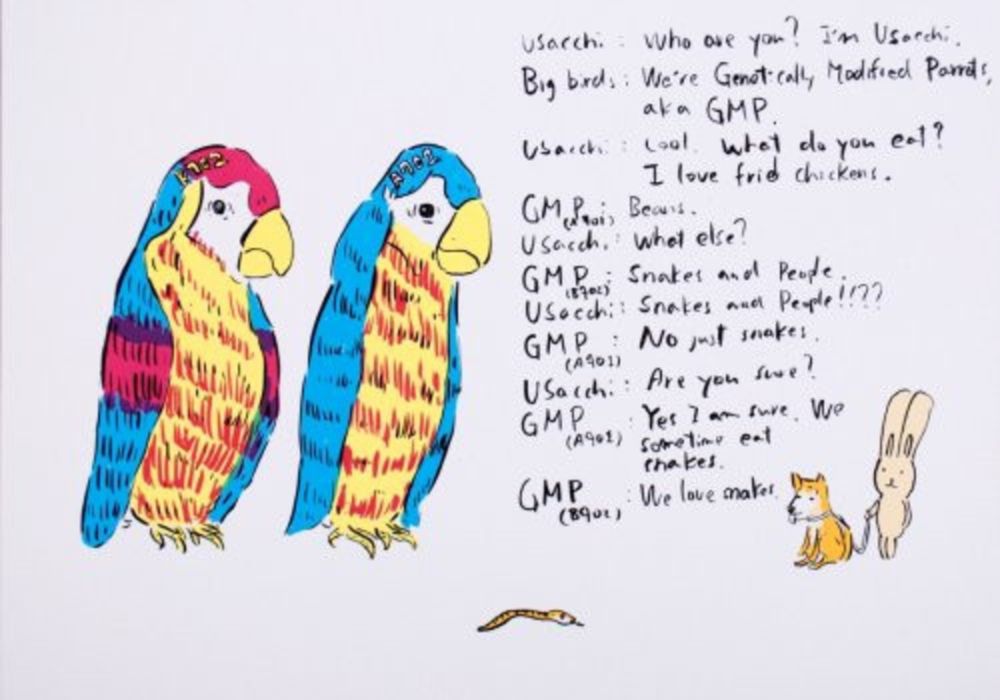 Usacchi : Who are you? I'm Usacchi.
Big birds : We're Genetically Modified Parrots,
aka GMP.
Usacchi : Cool. What do you eat?
I love frid chickens.
GMP : Beans.
Usacchi : What else?
GMP : Snakes and People.
(B902)
Usacchi : Snakes and People!!??
GMP : No just snakes.
(A901)
Usacchi : Are you sure?
GMP : Yes I am sure. We
(A901) sometime eat
snakes.
GMP : We love snakes.
(B902)